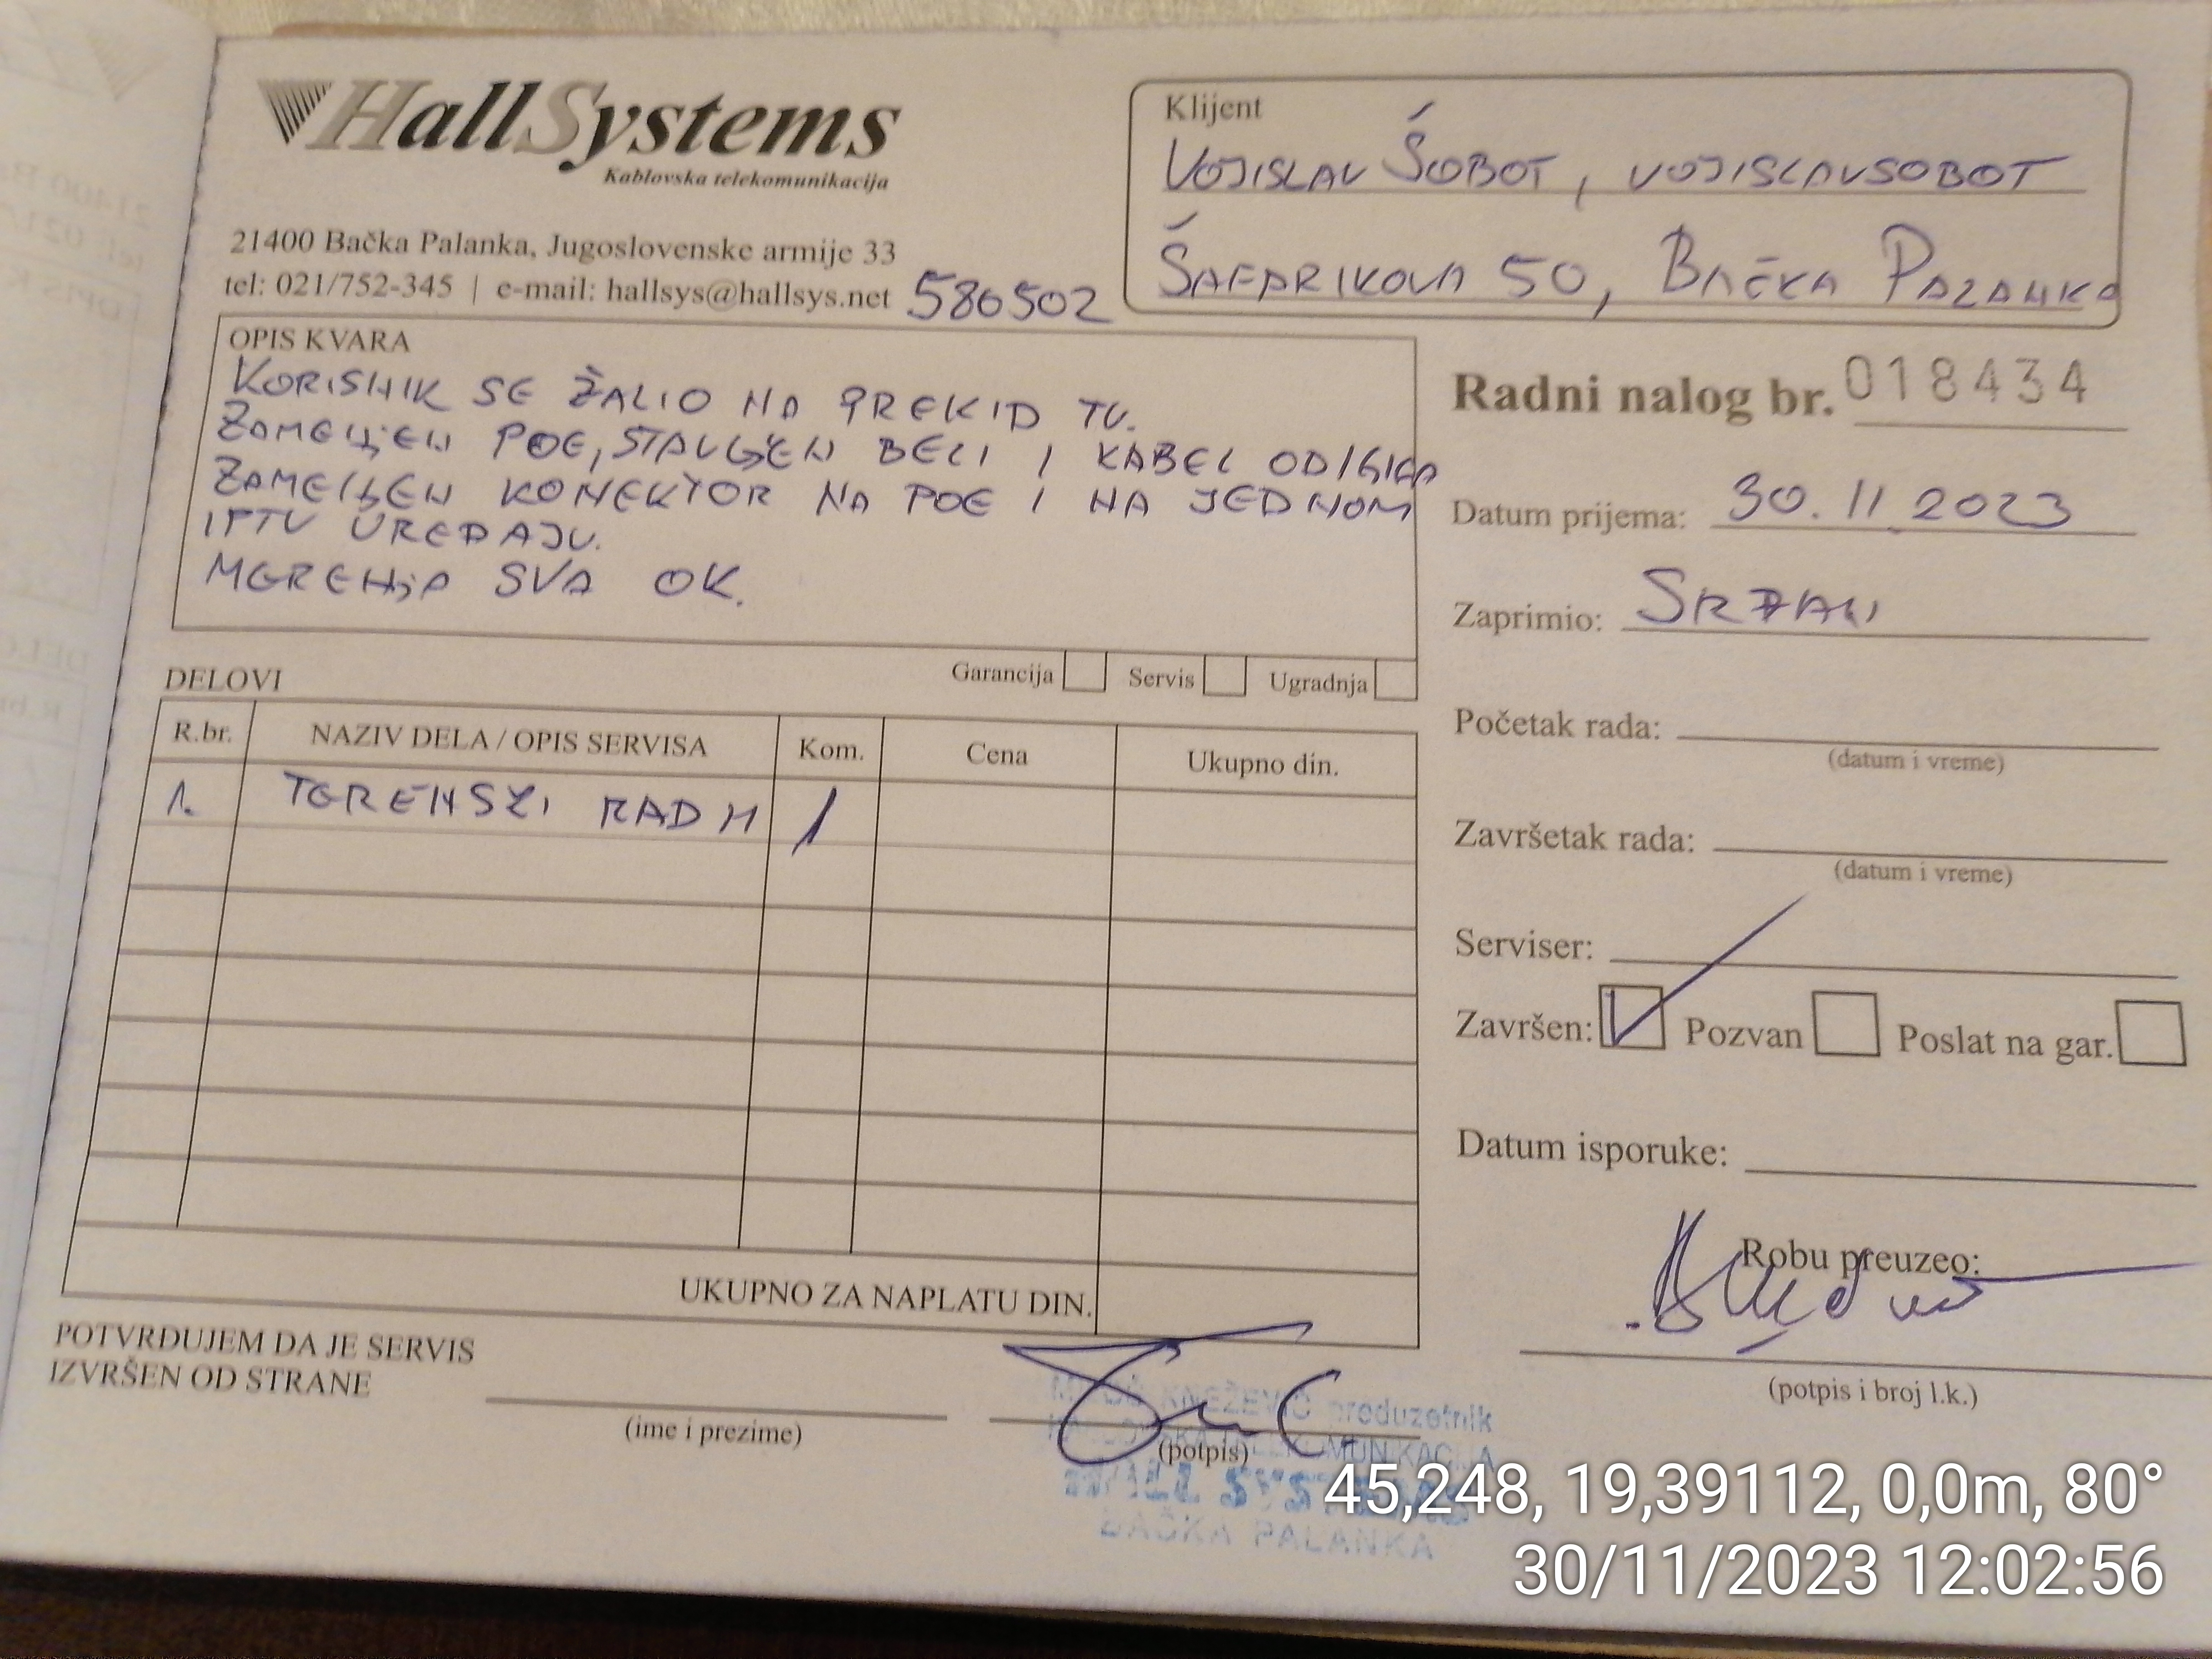 HallSystems
Kablovska telekomunikacija
21400 Bačka Palanka, Jugoslovenske armije 33
tel: 021/752-345 | e-mail: hallsys@hallsys.net 580502
Klijent
VOJISLAV ŠOBOT, VOJISLAVSOBOT
ŠAFARIKOVA 50, BAČKA PALANKA
OPIS KVARA
KORISNIK SE ŽALIO NA PREKID TV.
ZAMENJEN POE, STAVLJEN BELI I KABEL
ZAMENJEN KONEKTOR NA POE I NA JEDNOM
IPTV UREĐAJU.
MERENJA SVA OK.
Garancija Servis Ugradnja
Radni nalog br. 018434
Datum prijema: 30.11.2023
Zaprimio: SRĐAN
Početak rada:
(datum i vreme)
Završetak rada:
(datum i vreme)
Serviser:
Završen: Pozvan Poslat na gar.
Datum isporuke:
Robu preuzeo:
(potpis i broj l.k.)
DELOVI
R.br. NAZIV DELA / OPIS SERVISA Kom. Cena Ukupno din.
1. TERENSKI RAD M 1
UKUPNO ZA NAPLATU DIN.
POTVRĐUJEM DA JE SERVIS
IZVRŠEN OD STRANE
(ime i prezime)
(potpis)
KNEŽEVIĆ preduzetnik
HALL SYSTEMS
BAČKA PALANKA
45,248, 19,39112, 0,0m, 80°
30/11/2023 12:02:56